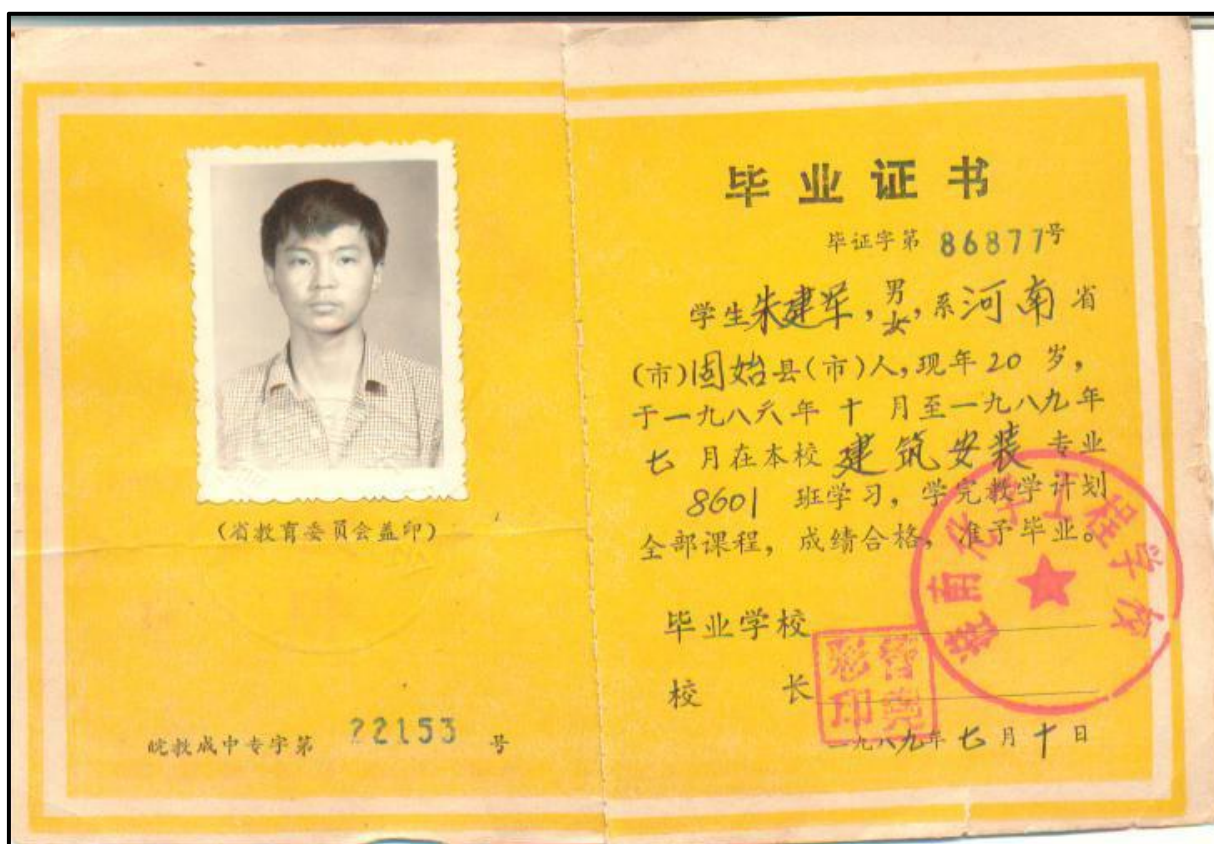 (省教育委员会盖印)
皖教成中专字第 22153 号
毕业证书
毕证字第 86877号
学生朱建军，男女，系河南省
(市)固始县(市)人，现年20岁，
于一九八六年十月至一九八九年
七月在本校建筑安装专业
8601班学习，学完教学计划
全部课程，成绩合格，准予毕业。
毕业学校
淮南化学工程学校
校长
印
一九八九年七月十日